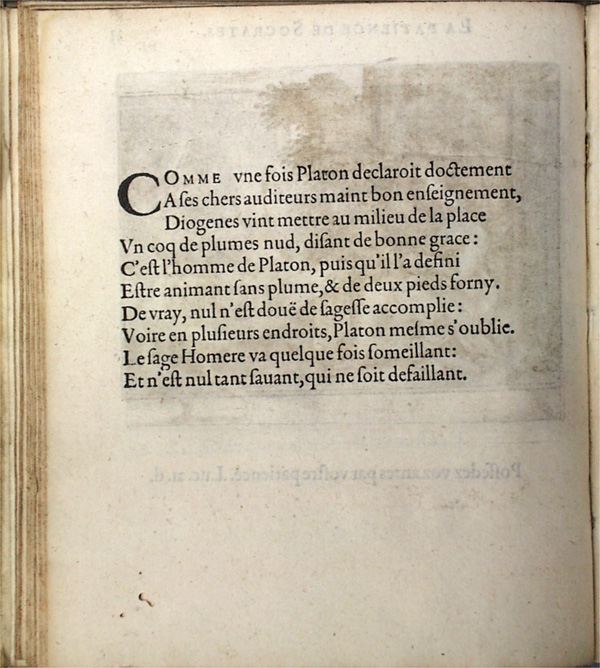 COMME vne fois Platon declaroit doctement
A ſes chers auditeurs maint bon enſeignement,
Diogenes vint mettre au milieu de la place
Vn coq de plumes nud, diſant de bonne grace:
C'eſt l'homme de Platon, puis qu'il l'a defini
Eſtre animant ſans plume, & de deux pieds forny.
De vray, nul n'eſt douë de ſageſſe accomplie:
Voire en pluſieurs endroits, Platon meſme s'oublie.
Le ſage Homere va quelque fois ſomeillant:
Et n'eſt nul tant ſauant, qui ne ſoit defaillant.